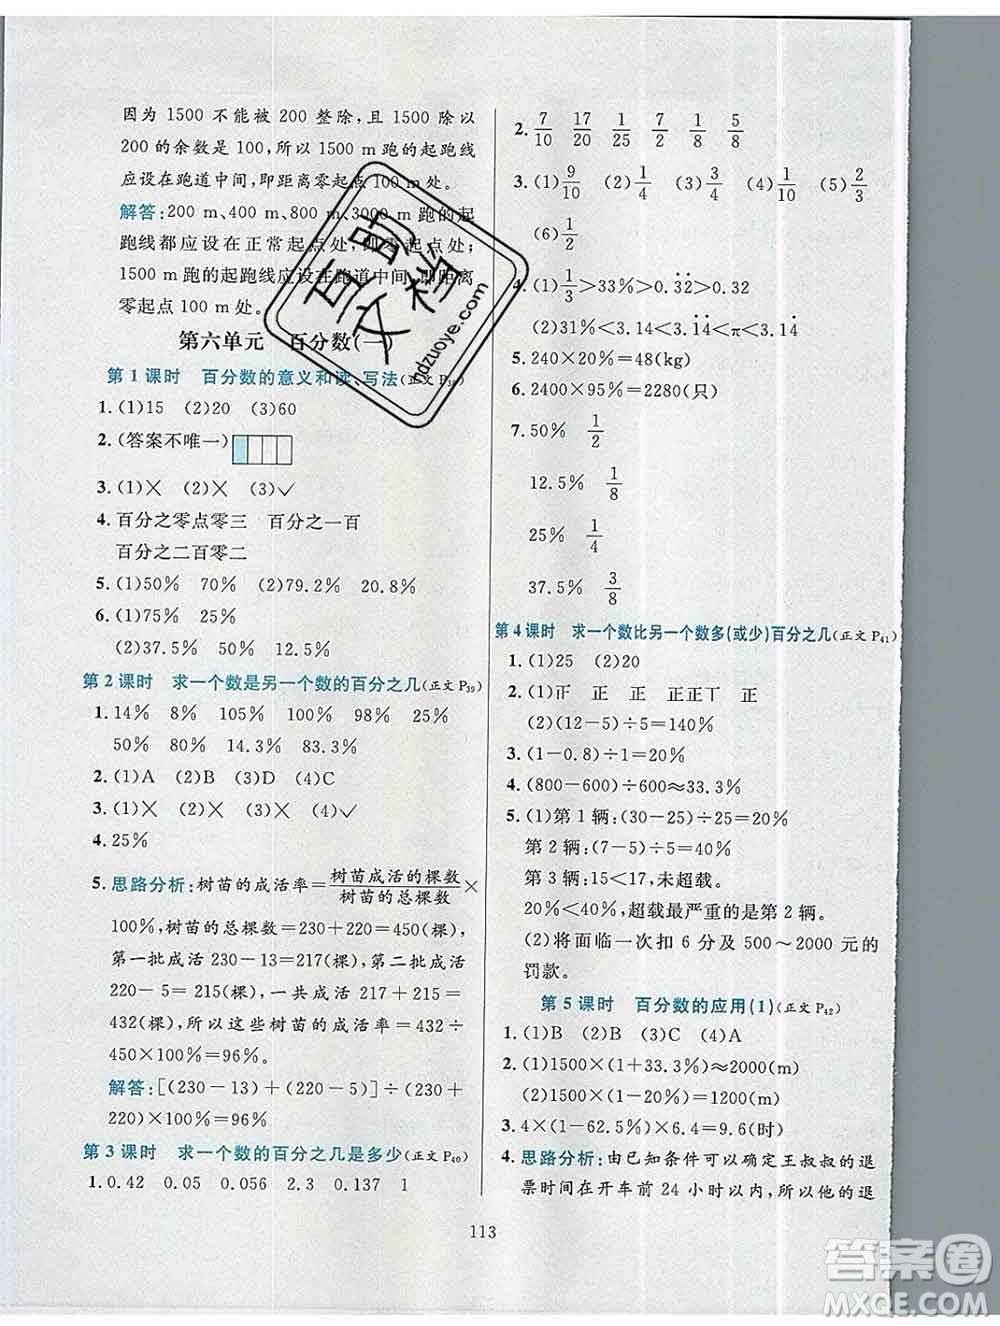 因为 1500 不能被 200 整除,且 1500 除以
200 的余数是 100,所以 1500 m 跑的起跑线
应设在跑道中间,即距离零起点 100 m 处。
解答:200 m、400 m、800 m、3000 m 跑的起
跑线都应设在正常起点处,即零起点处;
1500 m 跑的起跑线应设在跑道中间,即距离
零起点 100 m 处。
第六单元 百分数(一)
第 1 课时 百分数的意义和读、写法(正文 P
1. (1)15 (2)20 (3)60
2. (答案不唯一)
3. (1)× (2)× (3)✓
4. 百分之零点零三 百分之一百
百分之二百零二
5. (1)50% 70% (2)79.2% 20.8%
6. (1)75% 25%
(2)37.5% 50% 12.5%
第 2 课时 求一个数是另一个数的百分之几(正文 P39)
1. 14% 8% 105% 100% 98% 25%
50% 80% 14.3% 83.3%
2. (1)A (2)B (3)D (4)C
3. (1)× (2)× (3)× (4)✓
4. 25%
5. 思路分析:树苗的成活率=树苗成活的棵数/树苗的总棵数×
100%,树苗的总棵数=230+220=450(棵),
第一批成活 230-13=217(棵),第二批成活
220-5=215(棵),一共成活 217+215=
432(棵),所以这些树苗的成活率=432÷
450×100%=96%。
解答:[(230-13)+(220-5)]÷(230+
220)×100%=96%
第 3 课时 求一个数的百分之几是多少(正文 P40)
1. 0.42 0.05 0.056 2.3 0.137 1
2. 7/10 17/20 1/4 7/2 1/8 5/8
3. (1)9/10 (2)1/4 (3)3/4 (4)1/10 (5)2/3
(6)1/2
4. (1)1/3>33%>0.3̇2̇>0.32
(2)31%<3.14<3.1̇4̇<π<3.14̇
5. 240×20%=48(kg)
6. 2400×95%=2280(只)
7. 50% 1/2
12.5% 1/8
25% 1/4
37.5% 3/8
第 4 课时 求一个数比另一个数多(或少)百分之几(正文 P41)
1. (1)25 (2)20
2. (1)正 正 正 正正丅 正
(2)(12-5)÷5=140%
3. (1-0.8)÷1=20%
4. (800-600)÷600≈33.3%
5. (1)第 1 辆:(30-25)÷25=20%
第 2 辆:(7-5)÷5=40%
第 3 辆:15<17,未超载。
20%<40%,超载最严重的是第 2 辆。
(2)将面临一次扣 6 分及 500~2000 元的
罚款。
第 5 课时 百分数的应用(1)(正文 P42)
1. (1)B (2)B (3)C (4)A
2. (1)1500×(1+33.3%)≈2000(m)
(2)1500×(1-20%)=1200(m)
3. 4×(1-62.5%)×6.4=9.6(时)
4. 思路分析:由已知条件可以确定王叔叔的退
票时间在开车前 24 小时以内,所以他的退
113
百助文档
hdzuoye.com
答案圈
MXQE.COM